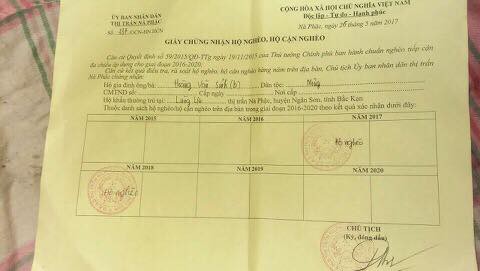 ỦY BAN NHÂN DÂN
THỊ TRẤN NÀ PHẶC
Số /GCN-HN.HCN
CỘNG HÒA XÃ HỘI CHỦ NGHĨA VIỆT NAM
Độc lập - Tự do - Hạnh phúc
Nà Phặc, ngày 26 tháng 5 năm 2017
GIẤY CHỨNG NHẬN HỘ NGHÈO, HỘ CẬN NGHÈO
Căn cứ Quyết định số 59/2015/QĐ-TTg ngày 19/11/2015 của Thủ tướng Chính phủ ban hành chuẩn nghèo tiếp cận
đa chiều áp dụng cho giai đoạn 2016-2020.
Căn cứ kết quả điều tra, rà soát hộ nghèo, hộ cận nghèo hàng năm trên địa bàn, Chủ tịch Ủy ban nhân dân thị trấn
Nà Phặc chứng nhận:
Hộ gia đình ông/bà: Hoàng Văn Sinh (b) Dân tộc: Nùng
CMTND số: Cấp ngày Nơi cấp
Hộ khẩu thường trú tại: thị trấn Nà Phặc, huyện Ngân Sơn, tỉnh Bắc Kạn
Thuộc danh sách hộ nghèo/hộ cận nghèo trên địa bàn trong giai đoạn 2016-2020 theo kết quả xác nhận dưới đây:
NĂM 2015 NĂM 2016 NĂM 2017
Hộ nghèo
NĂM 2018 NĂM 2019 NĂM 2020
Hộ nghèo
CHỦ TỊCH
(Ký, đóng dấu)